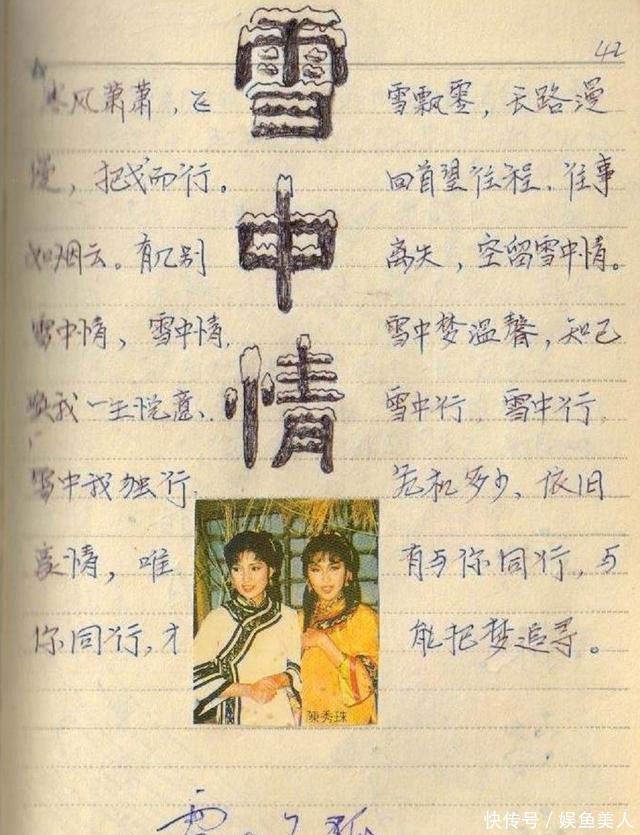 42
雪中情
寒风萧萧，飞雪飘零，长路漫
漫，把戈而行。回首望往程，往事
如烟云。有几别离失，空留雪中情。
雪中情，雪中情，雪中梦温馨，知己
我一生悦意、雪中行，雪中行，
雪中我独行，危机多少，依旧
豪情，唯有与你同行，与
你同行，才能把梦追寻。
陳秀珠
快传号/娱鱼美人